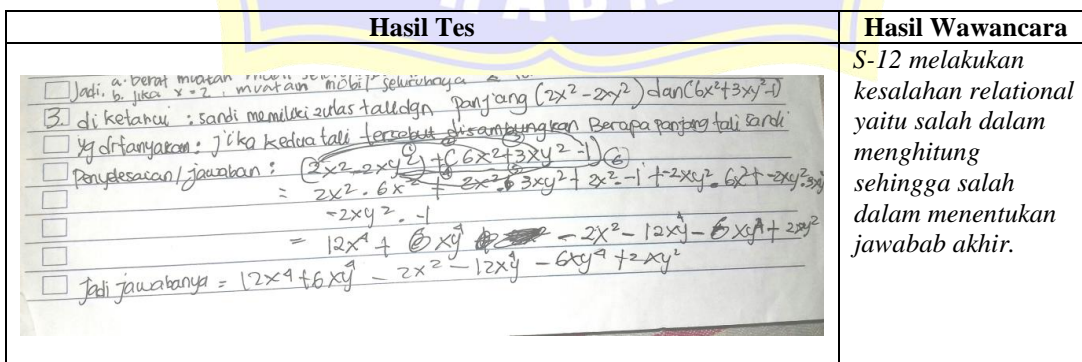 Hasil Tes
Jadi, a. berat muatan
b. jika x = 2, muatan mobil seluruhnya
3. diketahui : sandi memiliki seutas tali dgn panjang (2x² - 2xy²) dan (6x² + 3xy² - 1)
yg ditanyakan : jika kedua tali tersebut disambungkan Berapa panjang tali sandi
Penyelesaian / jawaban : (2x² - 2xy²) + (6x² + 3xy² - 1)
= 2x² . 6x² + 2x² . 3xy² + 2x² . -1 + -2xy² . 6x² + -2xy² . 3xy²
-2xy² . -1
= 12x⁴ + 6xy⁴ - 2x² - 12xy⁴ - 6xy⁴ + 2xy²
Jadi jawabanya = 12x⁴ + 6xy⁴ - 2x² - 12xy⁴ - 6xy⁴ + 2xy²
Hasil Wawancara
S-12 melakukan
kesalahan relational
yaitu salah dalam
menghitung
sehingga salah
dalam menentukan
jawabab akhir.